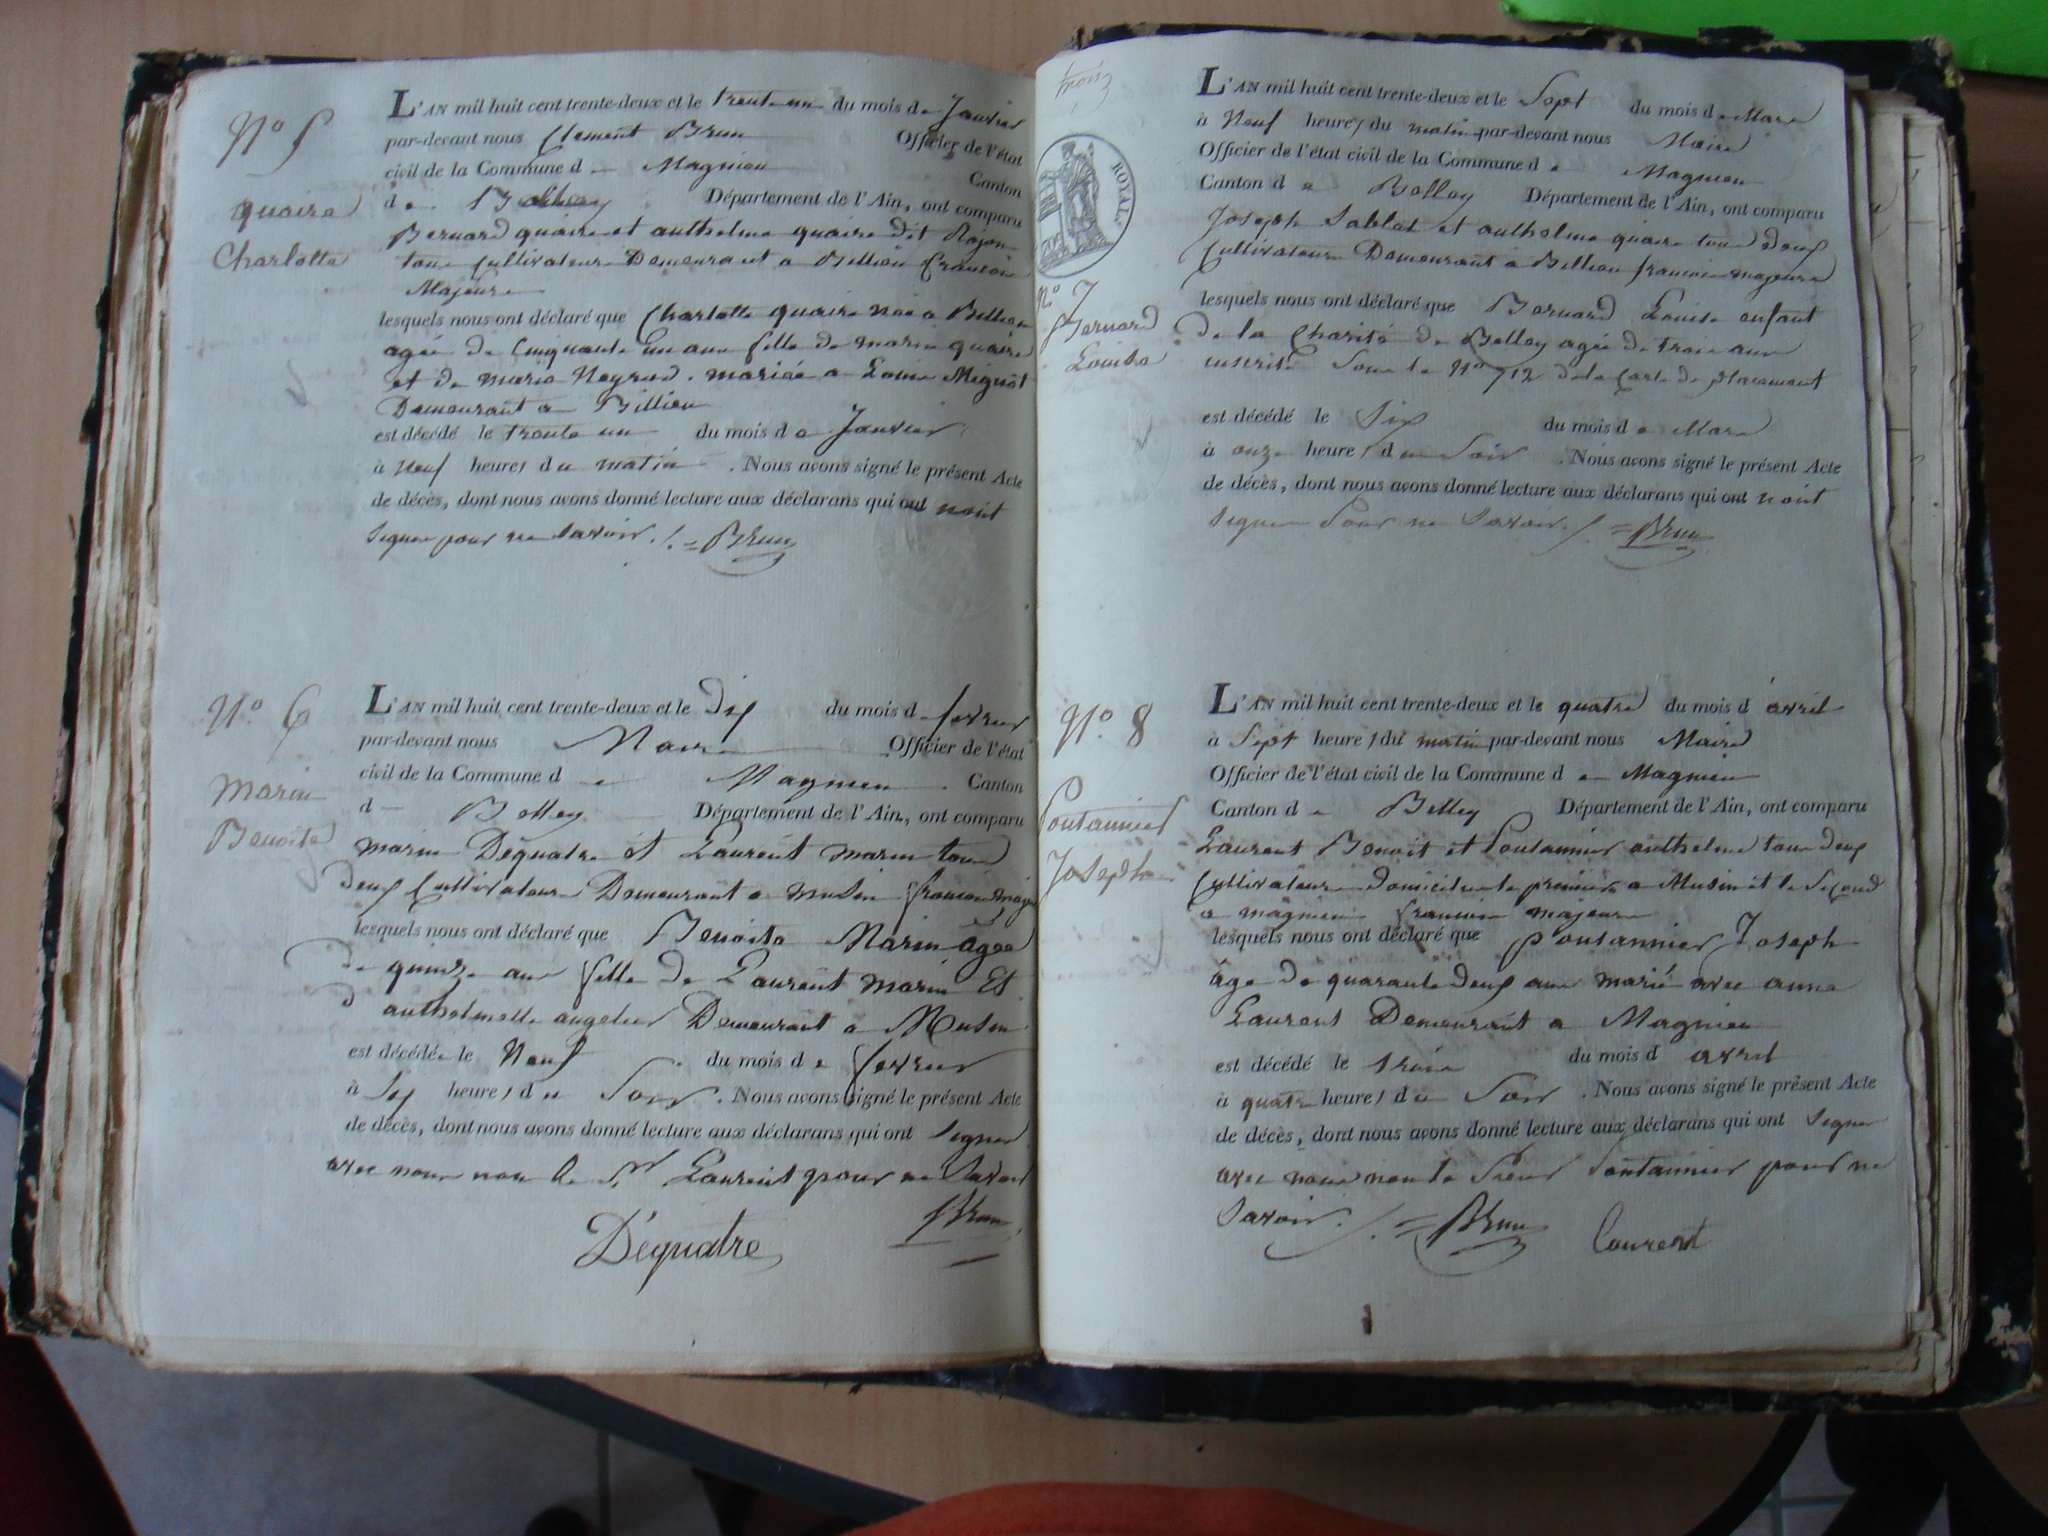 N° 5
quaire
Charlotte
L'AN mil huit cent trente-deux et le trente un du mois de Janvier
par-devant nous Clement Brun Officier de l'état
civil de la Commune de Magnieu Canton
de Belley Département de l'Ain, ont comparu
Bernard quaire et anthelme quaire dit
tous Cultivateurs Demeurant a Billieu francois
Majeurs
lesquels nous ont déclaré que Charlotte quaire née a Billieu
agée de Cinquante un ans fille de marin quaire
et de marie Neyrud. mariée a Louis Mignot
Demeurant a Billieu
est décédé le trente un du mois de Janvier
à Neuf heures du matin. Nous avons signé le présent Acte
de décès, dont nous avons donné lecture aux déclarans qui ont nont
signer pour ne savoir. /. = Brun
N° 6
Marin
Benoite
L'AN mil huit cent trente-deux et le dix du mois de fevrier
par-devant nous Maire Officier de l'état
civil de la Commune de Magnieu. Canton
de Belley Département de l'Ain, ont comparu
marin Déquatre et Laurent marin tous
deux Cultivateurs Demeurant a musin francois maj
lesquels nous ont déclaré que Benoite Marin âgée
de quinze ans fille de Laurent marin Et
d'anthelmette Demeurant a Musin
est décédée le Neuf du mois de fevrier
à Six heures du Soir. Nous avons signé le présent Acte
de décès, dont nous avons donné lecture aux déclarans qui ont signer
avec nous non le Sr Laurent pour ne Savoir
Déquatre Brun
trois
ROYAL
N° 7
Bernard
Louise
L'AN mil huit cent trente-deux et le Sept du mois de Mars
à Neuf heures du matin par-devant nous Maire
Officier de l'état civil de la Commune de Magnieu
Canton de Belley Département de l'Ain, ont comparu
Joseph Sablat et anthelme quaire tous Deux
Cultivateurs Demeurant a Billieu francois majeurs
lesquels nous ont déclaré que Bernard Louise enfant
de la Charité de Belley agée de trois ans
inscrite Sous le N° 712 de la Carte de placement
est décédé le Six du mois de Mars
à onze heures du Soir. Nous avons signé le présent Acte
de décès, dont nous avons donné lecture aux déclarans qui ont nont
signer Pour ne Savoir. /. = Brun
N° 8
Poutannier
Joseph
L'AN mil huit cent trente-deux et le quatre du mois d'avril
à Sept heures du matin par-devant nous Maire
Officier de l'état civil de la Commune de Magnieu
Canton de Belley Département de l'Ain, ont comparu
Laurent Benoit et Poutannier anthelme tous deux
Cultivateurs domicilies le premier a Musin et le Second
a magnieu francois majeurs
lesquels nous ont déclaré que Poutannier Joseph
âgé de quarante deux ans marié avec anne
Laurent Demeurant a Magnieu
est décédé le trois du mois d'avril
à quatre heures du Soir. Nous avons signé le présent Acte
de décès, dont nous avons donné lecture aux déclarans qui ont signer
avec nous non le Sieur Poutannier pour ne
Savoir. /. = Brun Laurent